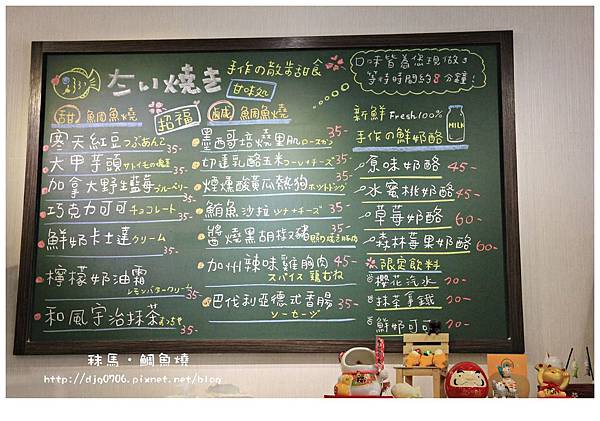 たい燒き 手作の散步甜食
甘味処
口味皆為您現做!
等待時間約8分鐘!
甜 鯛魚燒
招福
鹹 鯛魚燒
寒天紅豆つぶあんこ 35-
大甲芋頭 35-
加拿大野生藍莓ブルーベリー 35-
巧克力可可チョコレート 35-
鮮奶卡士達クリーム 35-
檸檬奶油霜 レモンバタークリーム 35-
和風宇治抹茶まっちゃ 35-
墨西哥培燒里肌ロースカツ 35-
切達乳酪玉米コーン+チーズ 35-
煙燻酸黃瓜熱狗ホットドッグ 35-
鮪魚沙拉ツナ+チーズ 35-
醬燒黑胡椒豬 35-
加州辣味雞胸肉 45-
スパイス 鶏むね
巴伐利亞德式香腸 35-
ソーセージ
新鮮Fresh100%
手作の鮮奶酪
MILK
原味奶酪 45-
水蜜桃奶酪 45-
草莓奶酪 60-
森林莓果奶酪 60-
限定飲料
櫻花汽水 70-
抹茶拿鐵 70-
鮮奶可可 70-
秣馬・鯛魚燒
http://djq0706.pixnet.net/blog